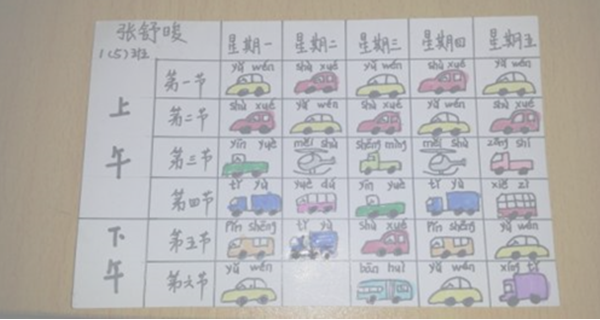 张舒晙
1(5)班
星期一 星期二 星期三 星期四 星期五
上午
第一节 yǔ wén shù xué yǔ wén shù xué yǔ wén
第二节 shù xué yǔ wén shù xué yǔ wén shù xué
第三节 yīn yuè měi shù shēng mìng měi shù zōng shí
第四节 tǐ yù yuè dú yīn yuè tǐ yù xiě zì
下午
第五节 Pǐn shēng tǐ yù shù xué Pǐn shēng yǔ wén
第六节 yǔ wén bān huì yǔ wén xíng tǐ